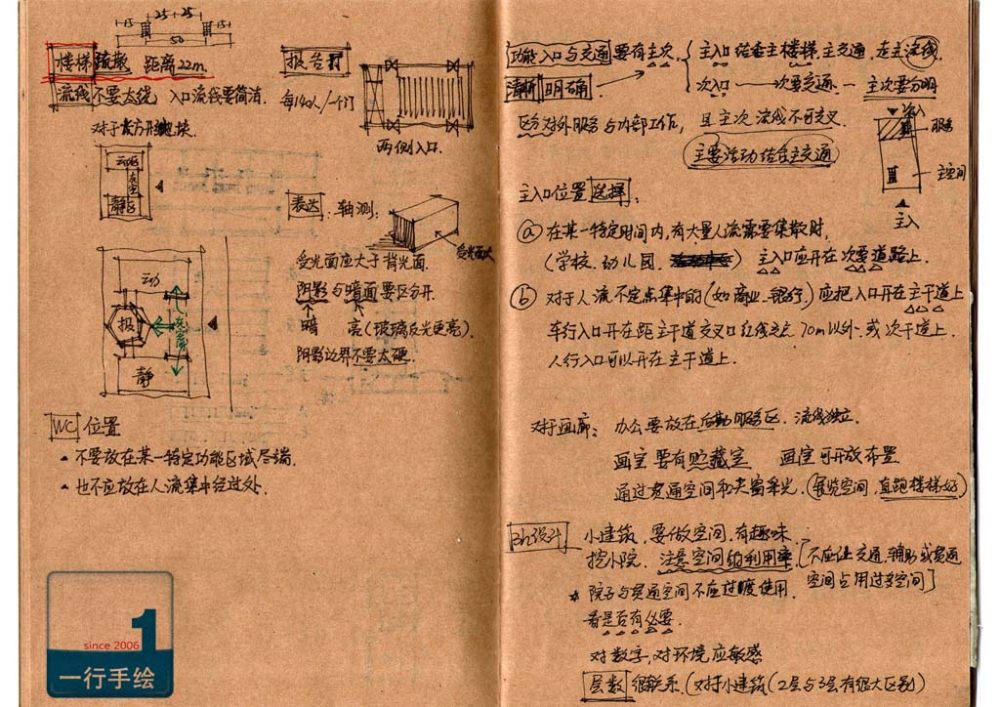 15 25 25 15
50
楼梯 疏散 距离22m.
流线 不要太绕 入口流线要简洁.
对于长方形地块.
动区
静区
报告厅
每140人/一个门
两侧入口.
表达: 轴测:
受光面大
受光面应大于背光面.
阴影与暗面要区分开.
暗 亮(玻璃反光更亮).
阴影边界不要太硬.
动
报
静
WC 位置
不要放在某一特定功能区域尽端.
也不应放在人流集中经过处.
功能入口与交通 要有主次.
清晰 明确
主入口 结合主楼梯.主交通, 走主流线
次入口 — 次要交通. — 主次要分明
区分对外服务与内部工作, 且主次流线不可交叉.
主要活动结合主交通
次入
服务
主空间
主入
主入口位置选择:
ⓐ 在某一特定时间内,有大量人流需要集散时,
(学校.幼儿园. ) 主入口应开在次要道路上.
ⓑ 对于人流不定点集中的(如商业.银行.)应把入口开在主干道上
车行入口开在距主干道交叉口红线交点 70m以外.或次干道上.
人行入口可以开在主干道上.
对于画廊: 办公要放在后勤服务区. 流线独立.
画室要有贮藏室 画室可开放布置
通过贯通空间和天窗采光.(展览空间.直跑楼梯好)
3h设计 小建筑.要做空间.有趣味.
挖小院. 注意空间的利用率.[不应让交通.辅助或贯通
空间占用过多空间]
* 院子与贯通空间不应过度使用.
看是否有必要.
对数字.对环境应敏感
层数 很关系.(对于小建筑(2层与3层有很大区别)
1
since 2006
一行手绘